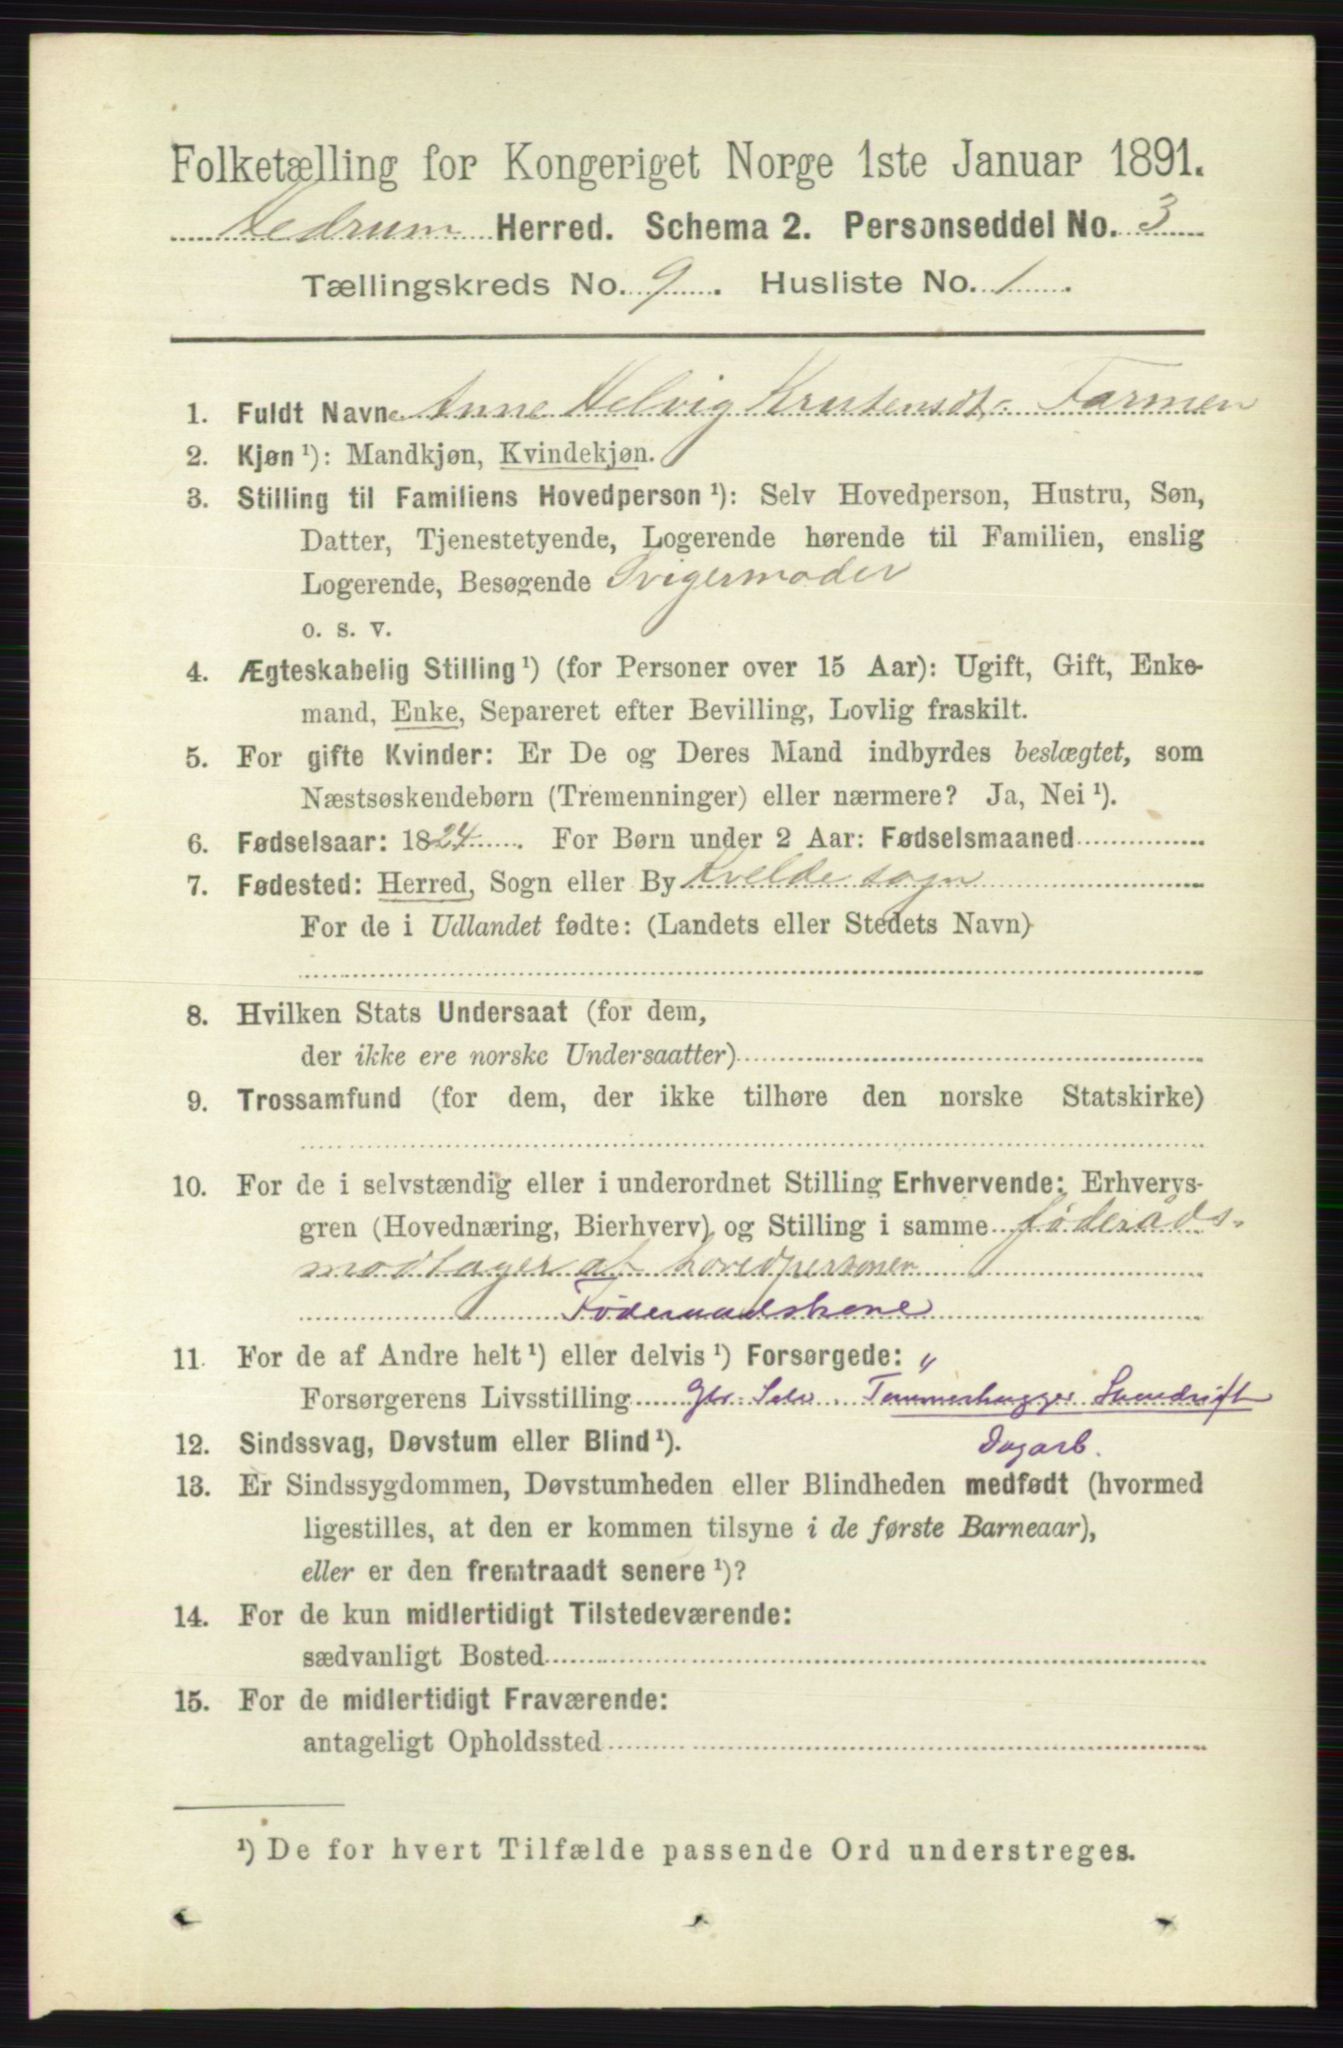 Folketælling for Kongeriget Norge 1ste Januar 1891.
Hedrum Herred. Schema 2. Personseddel No. 3
Tællingskreds No. 9. Husliste No. 1.
1. Fuldt Navn Anne Helvig Kristensdt. Farmen
2. Kjøn ¹): Mandkjøn, Kvindekjøn.
3. Stilling til Familiens Hovedperson ¹): Selv Hovedperson, Hustru, Søn,
Datter, Tjenestetyende, Logerende hørende til Familien, enslig
Logerende, Besøgende Svigermoder
o. s. v.
4. Ægteskabelig Stilling ¹) (for Personer over 15 Aar): Ugift, Gift, Enke-
mand, Enke, Separeret efter Bevilling, Lovlig fraskilt.
5. For gifte Kvinder: Er De og Deres Mand indbyrdes beslægtet, som
Næstsøskendebørn (Tremenninger) eller nærmere? Ja, Nei ¹).
6. Fødselsaar: 1824. For Børn under 2 Aar: Fødselsmaaned
7. Fødested: Herred, Sogn eller By Kvelde sogn
For de i Udlandet fødte: (Landets eller Stedets Navn)
8. Hvilken Stats Undersaat (for dem,
der ikke ere norske Undersaatter)
9. Trossamfund (for dem, der ikke tilhøre den norske Statskirke)
10. For de i selvstændig eller i underordnet Stilling Erhvervende: Erhvervs-
gren (Hovednæring, Bierhverv) og Stilling i samme föderåds-
modtager af hovedpersonen
Föderaadskone
11. For de af Andre helt ¹) eller delvis ¹) Forsørgede: "
Forsørgerens Livsstilling Tømmerhugger
12. Sindssvag, Døvstum eller Blind ¹). Dagarb.
13. Er Sindssygdommen, Døvstumheden eller Blindheden medfødt (hvormed
ligestilles, at den er kommen tilsyne i de første Barneaar),
eller er den fremtraadt senere ¹)?
14. For de kun midlertidigt Tilstedeværende:
sædvanligt Bosted
15. For de midlertidigt Fraværende:
antageligt Opholdssted
¹) De for hvert Tilfælde passende Ord understreges.